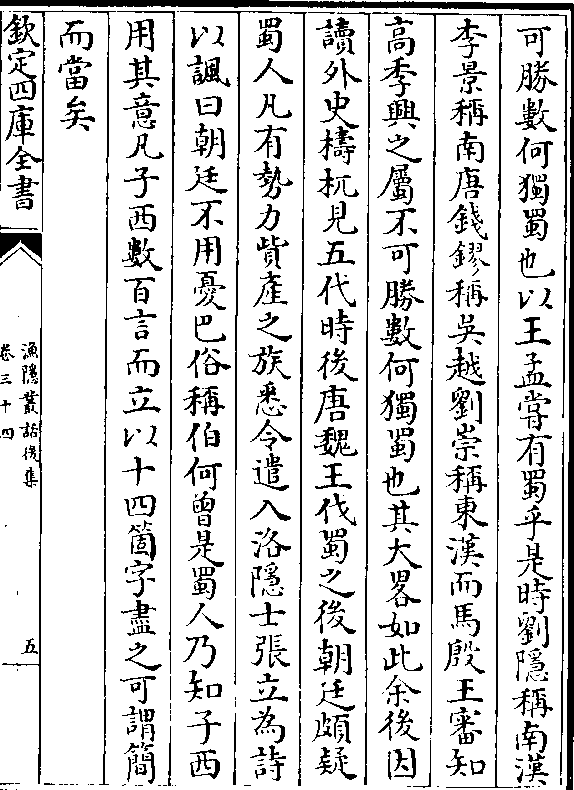 可勝數何獨蜀也以王孟嘗有蜀乎是時劉隱稱南漢
李景稱南唐錢鏐稱吳越劉崇稱東漢而馬殷王審知
高季興之屬不可勝數何獨蜀也其大畧如此余後因
讀外史檮杌見五代時後唐魏王伐蜀之後朝廷頗疑
蜀人凡有勢力貲產之族悉令遣入洛隱士張立為詩
以諷曰朝廷不用憂巴俗稱伯何曾是蜀人乃知子西
用其意凡子西數百言而立以十四箇字盡之可謂簡
而當矣
欽定四庫全書
漁隱叢話後集
卷三十四
五